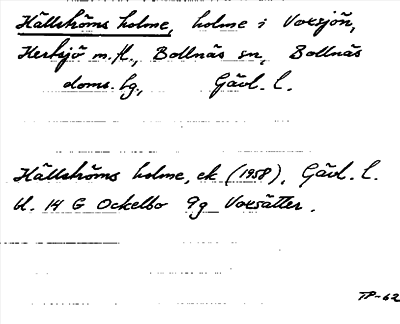 Hällströms holme, holme i Voxsjön,
Herksjö m.fl., Bollnäs sn, Bollnäs
doms. hg., Gävl. l.
Hällströms holme, ek (1958), Gävl. l.
bl. 14 G Ockelbo 9g Voxsätter.
TP-62